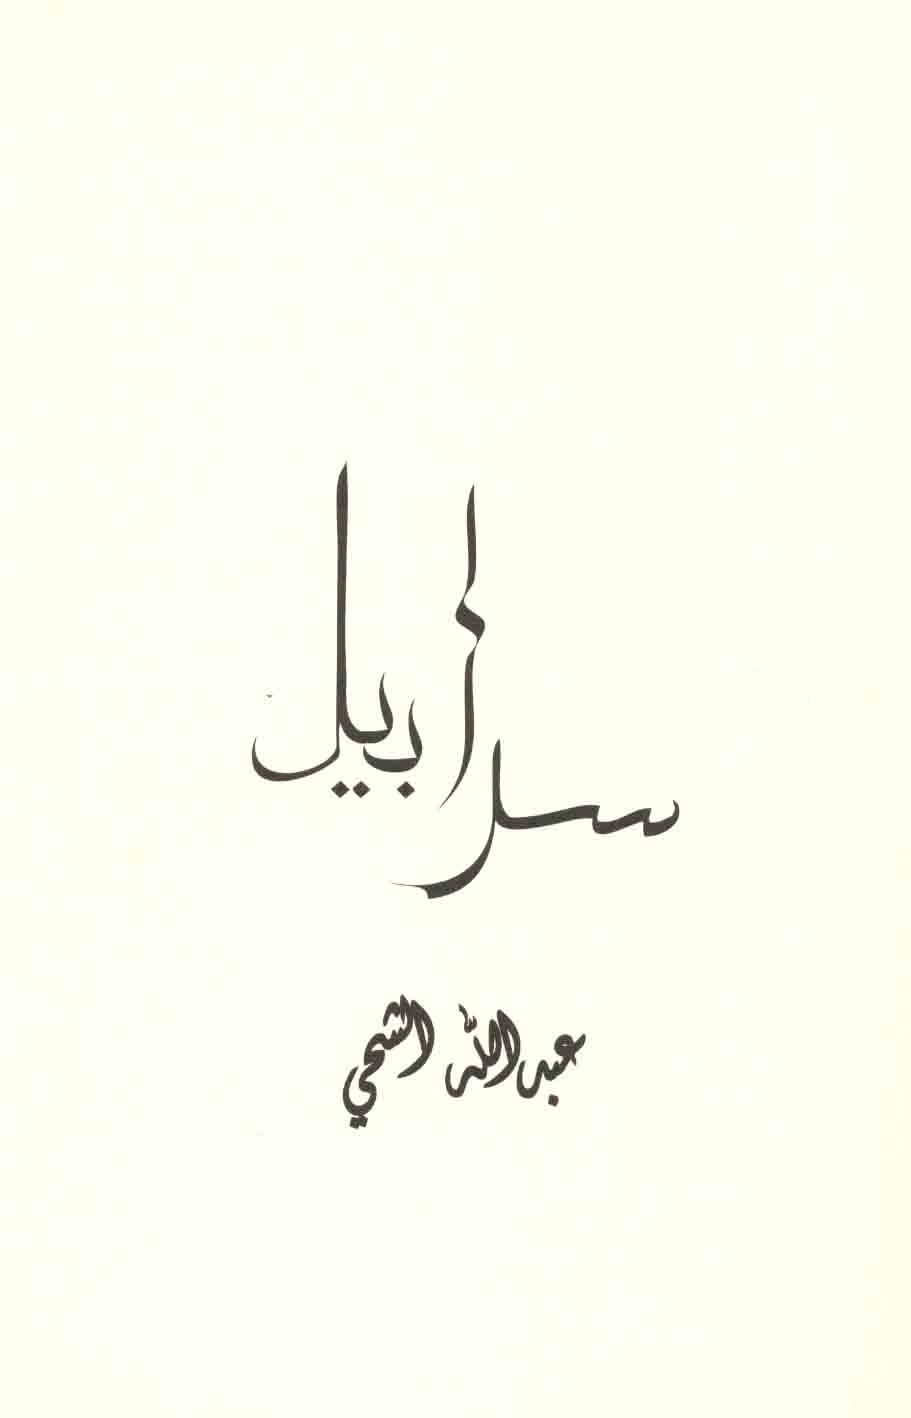 سرابيل
عبدالله الشحي